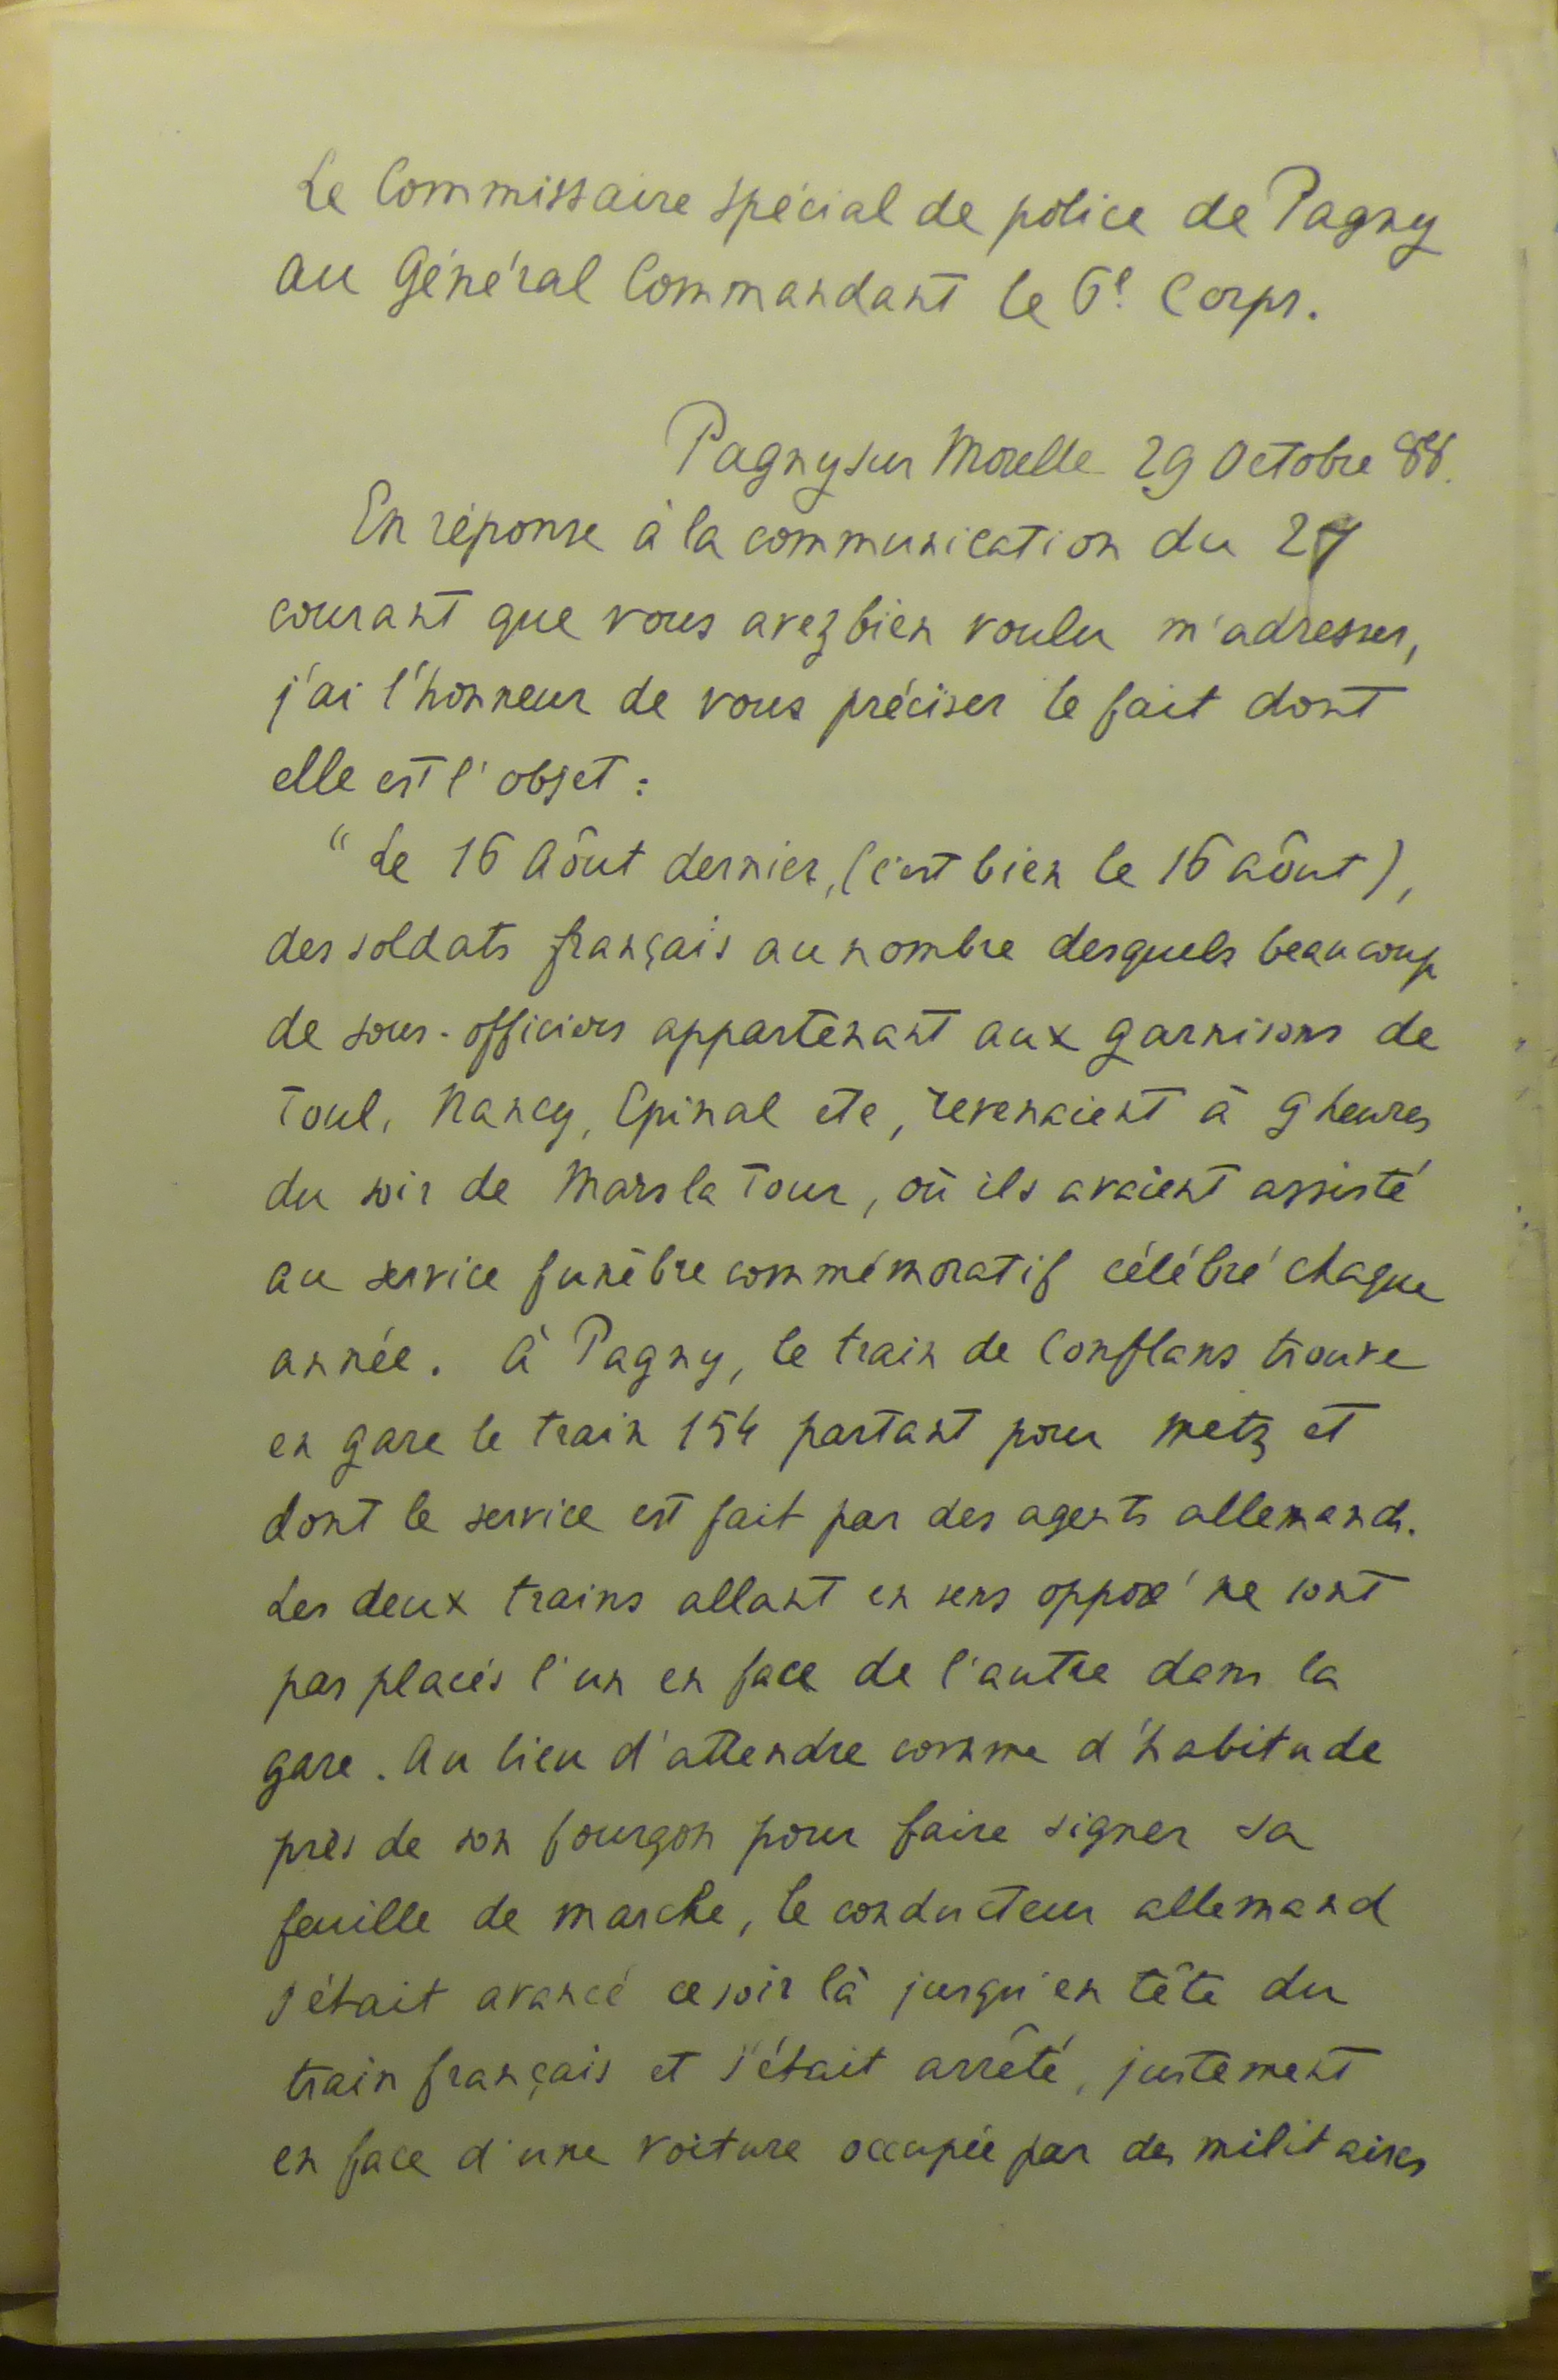 Le Commissaire spécial de police de Pagny
au Général Commandant le 6e. Corps.
Pagny sur Moselle 29 Octobre 88.
En réponse à la communication du 27
courant que vous avez bien voulu m'adresser,
j'ai l'honneur de vous préciser le fait dont
elle est l'objet :
" Le 16 Aôut dernier, (c'est bien le 16 aôut),
des soldats français au nombre desquels beaucoup
de sous-officiers appartenant aux garnisons de
Toul, Nancy, Epinal etc, revenaient à 9 heures
du soir de Mars la Tour, où ils avaient assisté
au service funèbre commémoratif célébré chaque
année. à Pagny, le train de Conflans trouve
en gare le train 154 partant pour Metz et
dont le service est fait par des agents allemands.
Les deux trains allant en sens opposé ne sont
pas placés l'un en face de l'autre dans la
gare. Au lieu d'attendre comme d'habitude
près de son fourgon pour faire signer sa
feuille de marche, le conducteur allemand
s'était avancé ce soir là jusqu'en tête du
train français et s'était arrêté, justement
en face d'une voiture occupée par des militaires